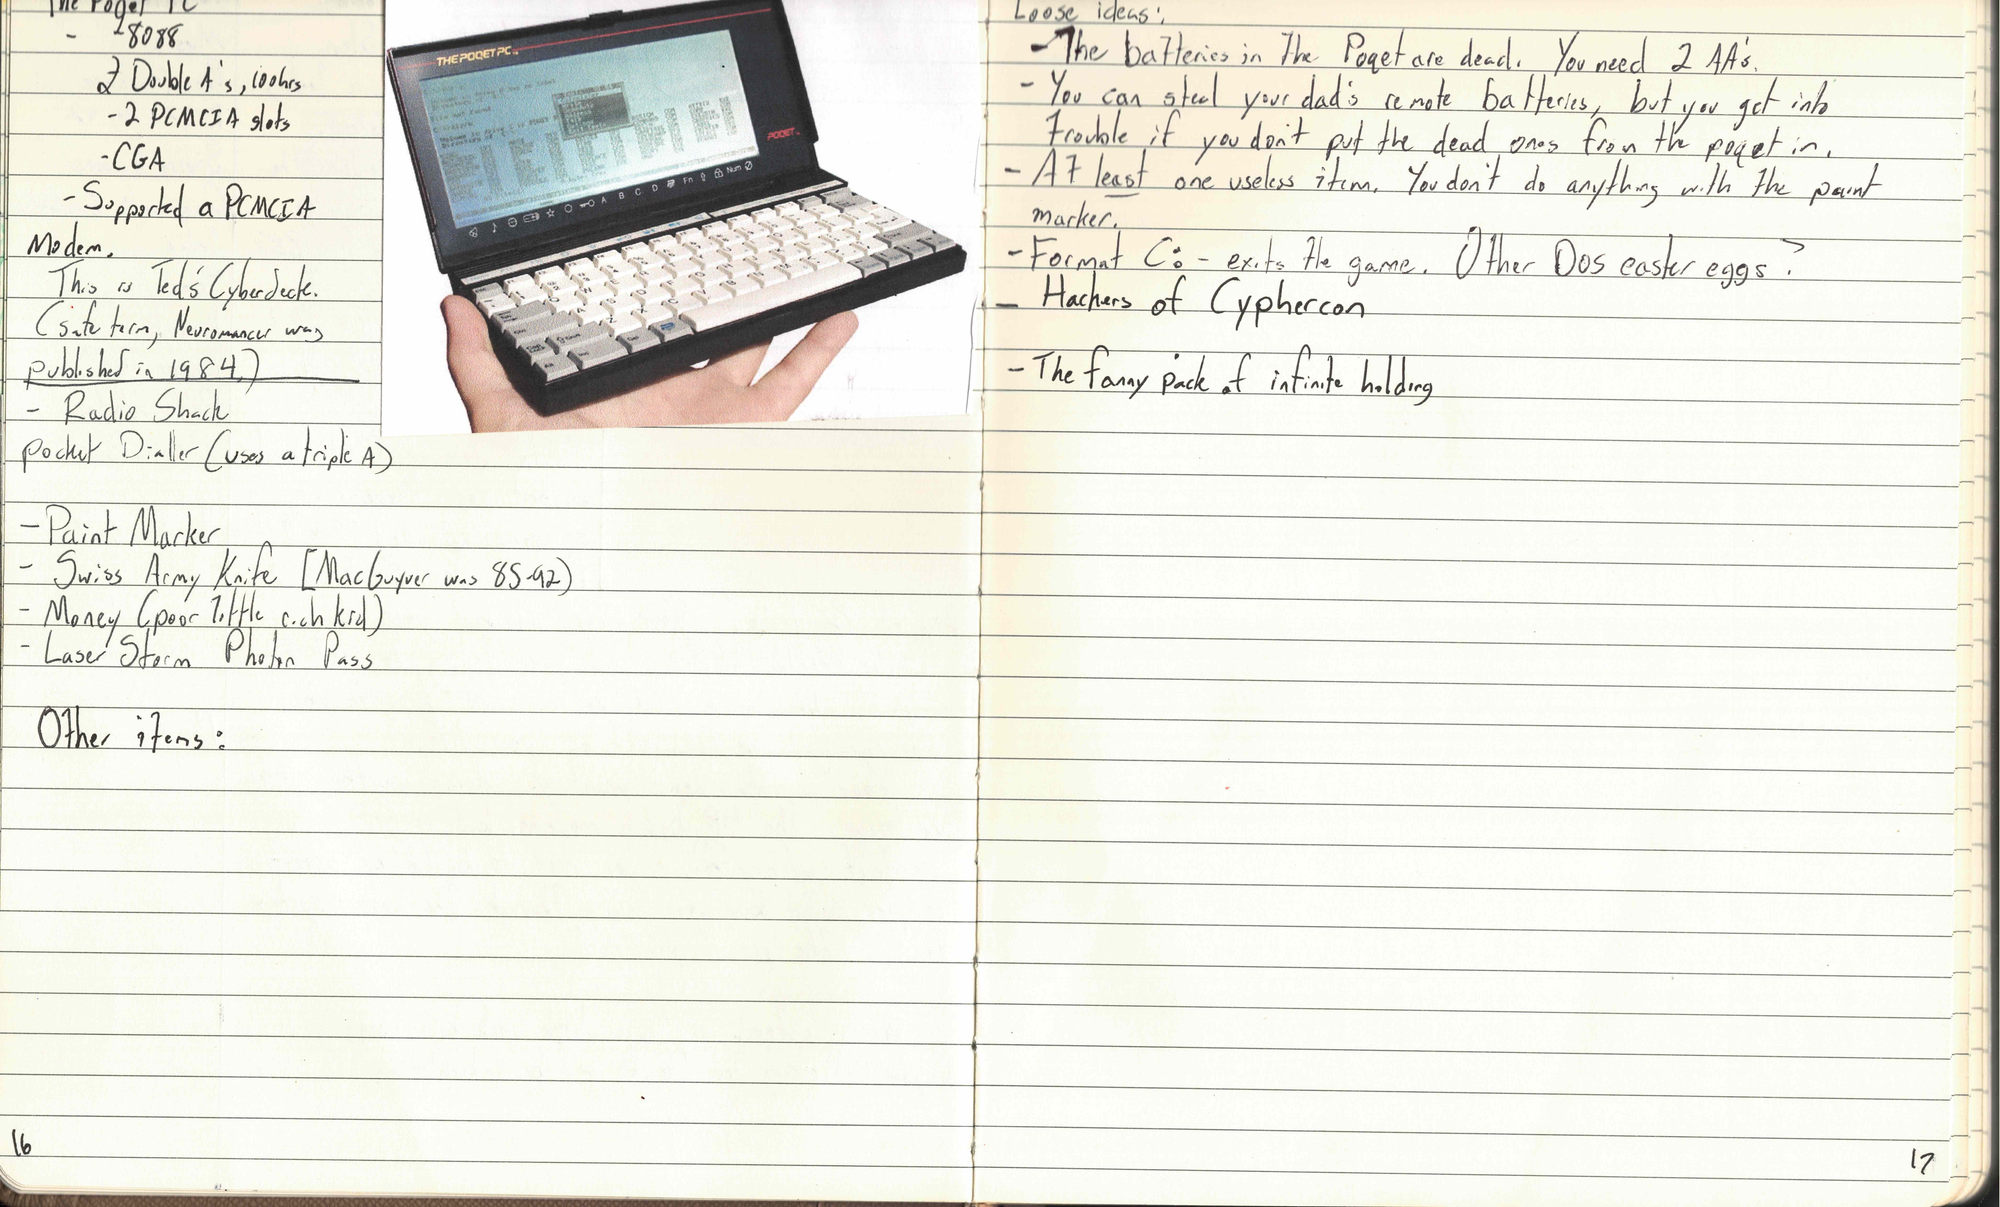 The Poqet PC
- 8088
2 Double A's, 100hrs
- 2 PCMCIA slots
- CGA
- Supported a PCMCIA
Modem.
This is Ted's Cyberdeck.
(safe term, Neuromancer was
published in 1984.)
- Radio Shack
pocket Dialler (uses a triple A)
- Paint Marker
- Swiss Army Knife [MacGuyver was 85-92)
- Money (poor little rich kid)
- Laser Storm Photon Pass
Other items:
16
THE POQET PC
POQET
A B C D Fn Num
Loose ideas:
- The batteries in The Poqet are dead. You need 2 AA's.
- You can steal your dad's remote batteries, but you get into
trouble if you don't put the dead ones from the poqet in.
- At least one useless item. You don't do anything with the paint
marker.
- Format C: - exits the game. Other Dos easter eggs?
- Hackers of Cyphercon
- The fanny pack of infinite holding
17